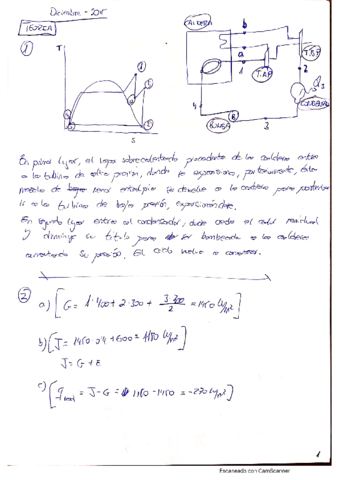 Diciembre - 2015
TEORIA
①
T
S
CALDERA
b
a
1
T.A.P
T.B.P
2
Qs
CONDENSADOR
4
B
BOMBA
3
En primer lugar, el vapor sobrecalentado procedente de la caldera entra
a la turbina de alta presión, donde se expansiona, posteriormente, este
se devuelve a la caldera para posterior
a la turbina de baja presión, expansionándose.
En segundo lugar entra al condensador, donde cede el calor residual
y disminuye su título para ser bombeado a la caldera
aumentando su presión. El ciclo vuelve a comenzar.
②
a) [G = 1·400 + 2·300 + 3·300/2 = 1450 W/m²]
b) [J = 1450·0,4 + 600 = 1180 W/m²]
J = G + E
c) [q = J - G = 1180 - 1450 = -270 W/m²]
1
Escaneado con CamScanner